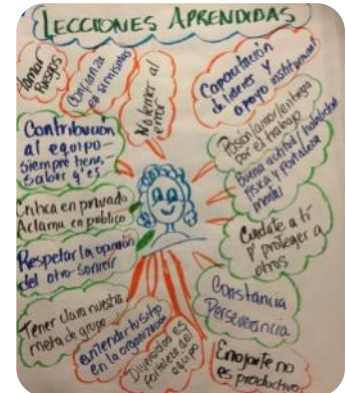 LECCIONES APRENDIDAS
Tomar
Riesgos
Confianza
en si mismos
No temer al
error
Capacitación
de lideres y
apoyo institucional
Pasión/amor/entrega
por el trabajo
Contribución
al equipo-
siempre tiene-
saber q' es
Buena actitud/habilidad
física y fortaleza
mental
Critica en privado
Aclama en publico
Cuidate a tí
y proteger a
otros
Respetar la opinión
del otro-sonreir
Constancia
Perseverancia
Tener clara nuestra
meta de grupo
entender tu sitio
en la organización
Diversidad es
fortaleza del
equipo
Enojarte no
es productivo